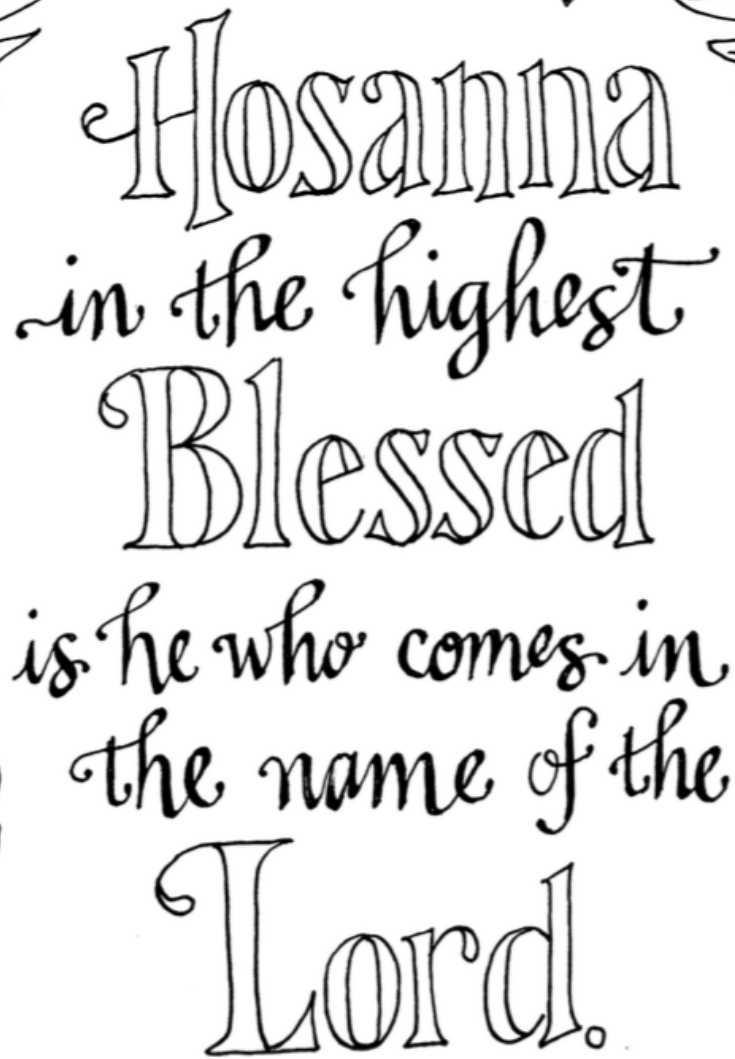 Hosanna
in the highest
Blessed
is he who comes in
the name of the
Lord.